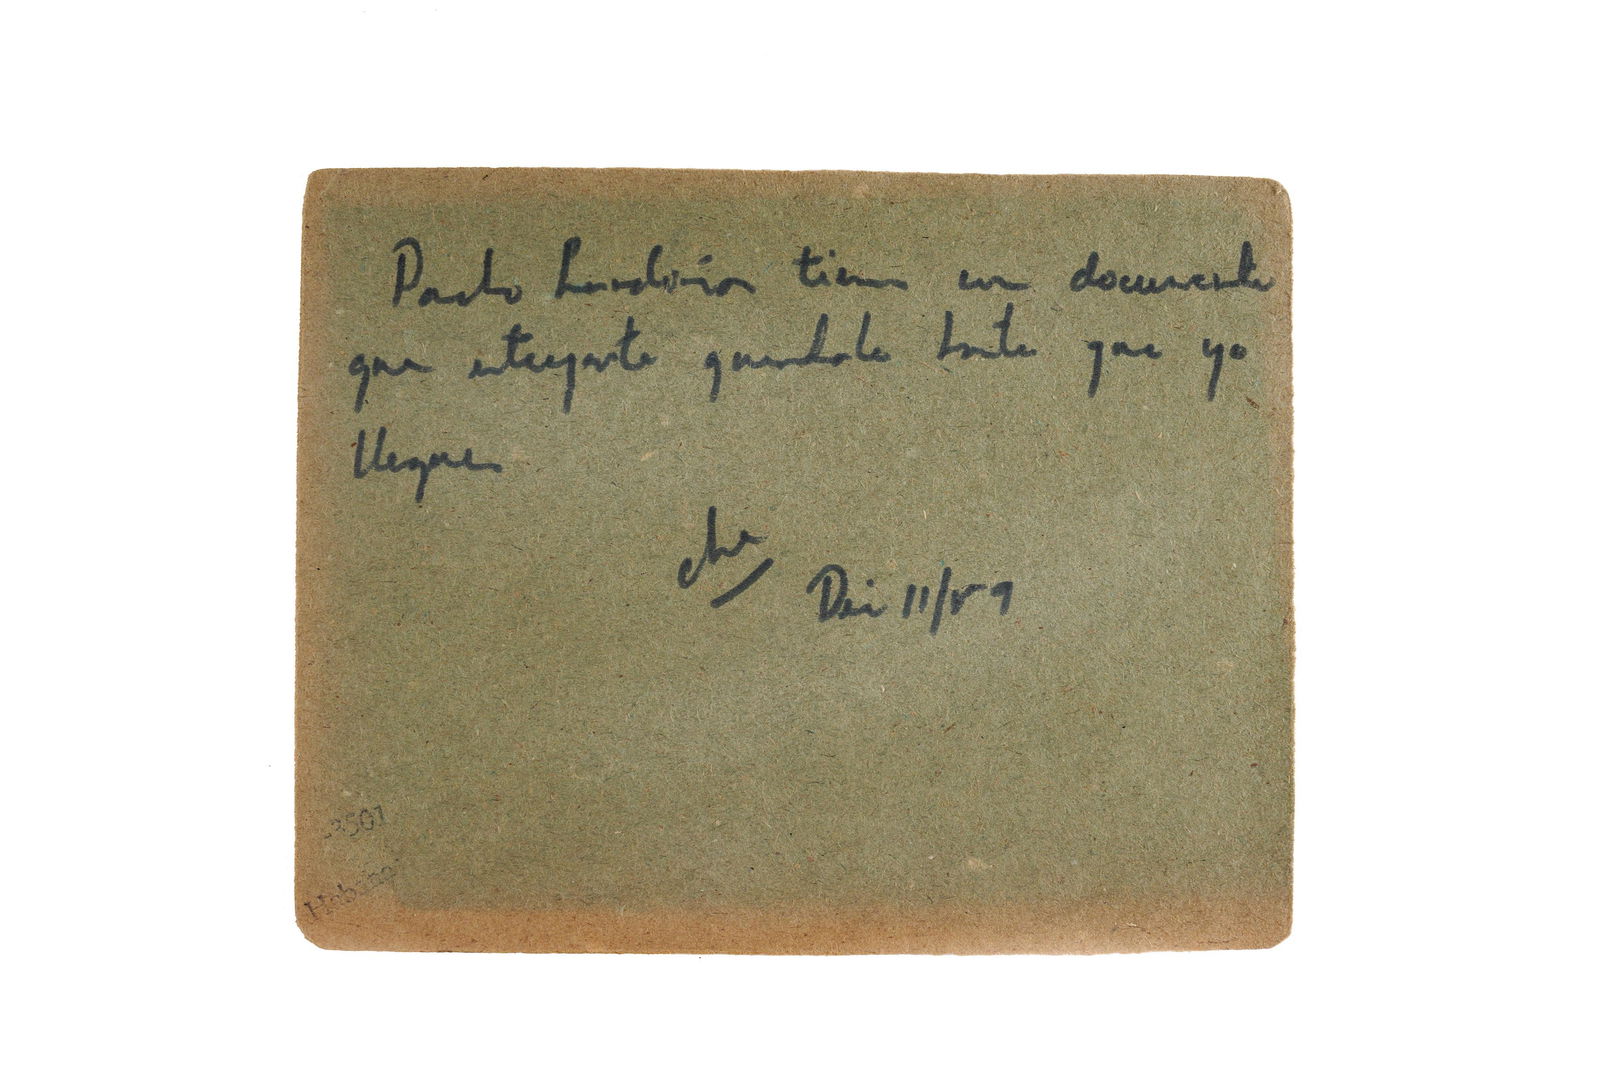 tiene un documento
que entregarte guardalo hasta que yo
llegue.
che
Dic 11/59
2501
Habana